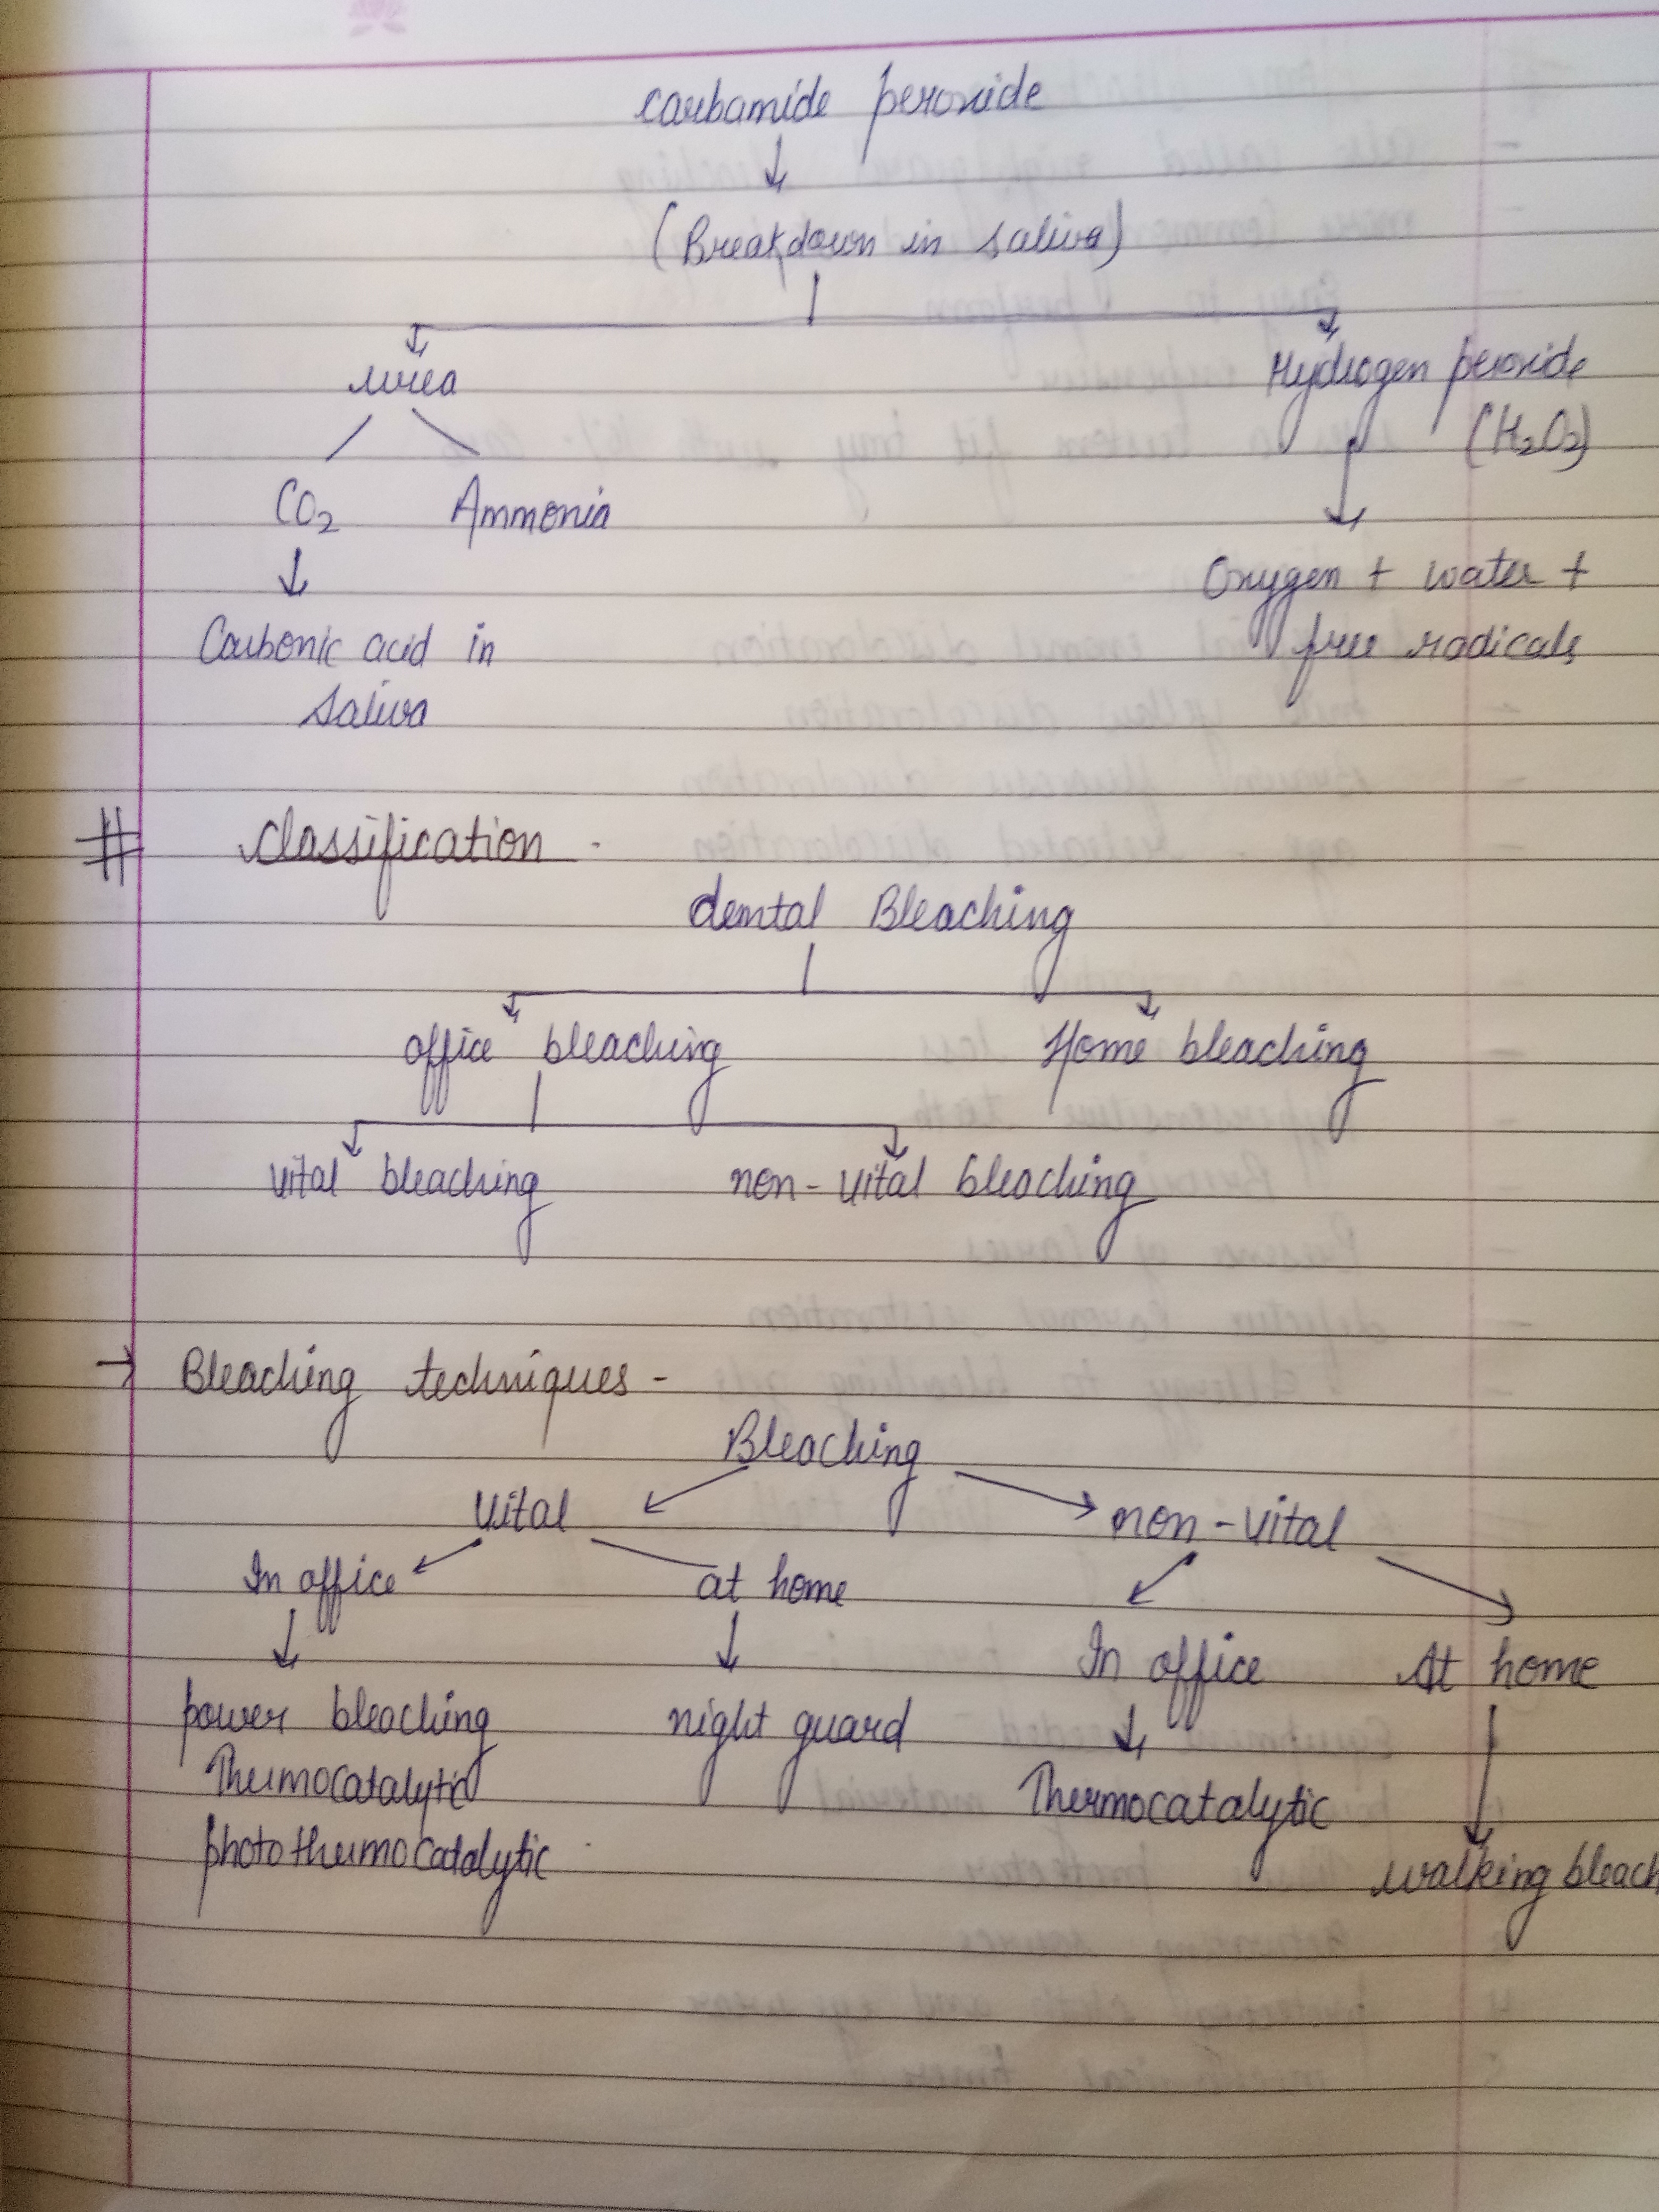 carbamide peroxide
(Breakdown in saliva)
urea Hydrogen peroxide
(H₂O₂)
CO₂ Ammonia
Oxygen + water +
Carbonic acid in free radicals
saliva
# Classification -
dental Bleaching
office bleaching Home bleaching
vital bleaching non-vital bleaching
→ Bleaching techniques -
Bleaching
Vital non-vital
In office at home
In office At home
power bleaching night guard
Thermocatalytic Thermocatalytic
photothermocatalytic walking bleach